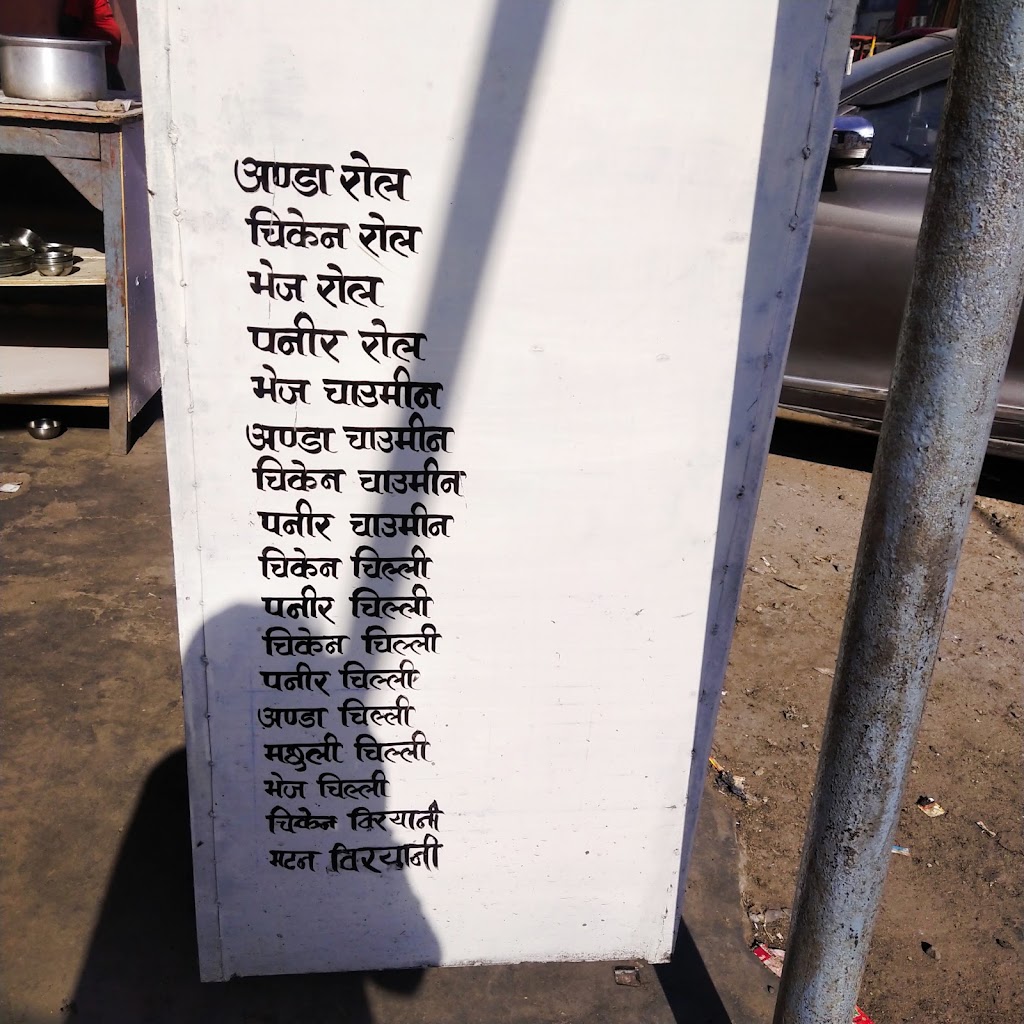 अण्डा रोल
चिकेन रोल
भेज रोल
पनीर रोल
भेज चाउमीन
अण्डा चाउमीन
चिकेन चाउमीन
पनीर चाउमीन
चिकेन चिल्ली
पनीर चिल्ली
चिकेन चिल्ली
पनीर चिल्ली
अण्डा चिल्ली
मछली चिल्ली
भेज चिल्ली
चिकेन विरयानी
मटन विरयानी